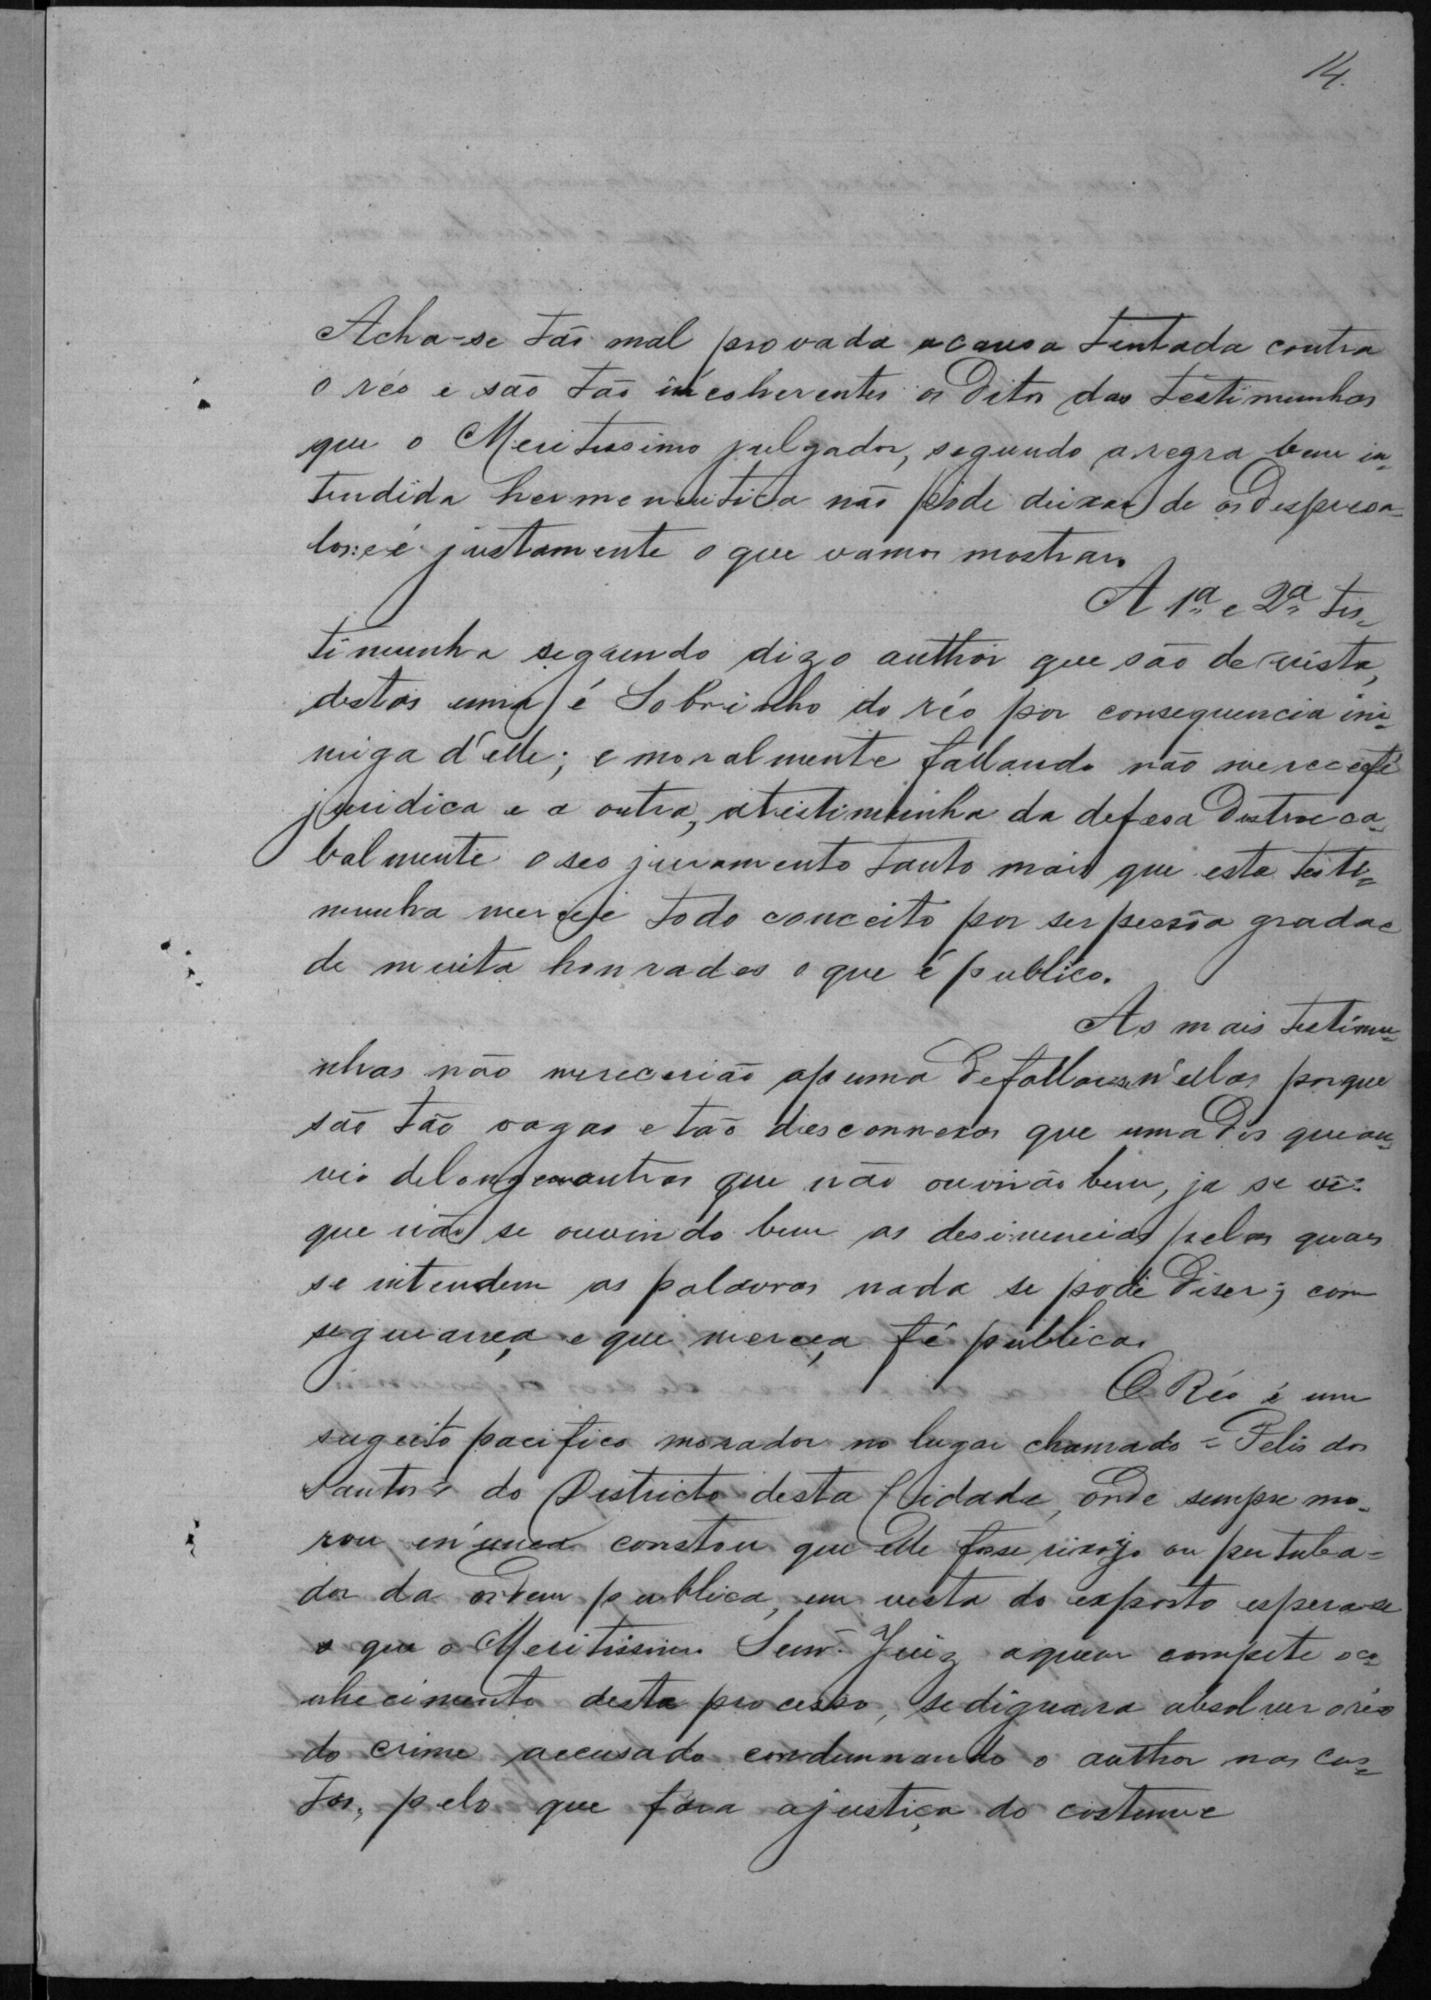 14.
Acha-se tão mal provada a causa tentada contra
o réo e são tão incoherentes os ditos das testimunhas
que o Meritissimo julgador, segundo a regra bem in-
tendida hermeneutica não póde deixar de os despresa-
los: e é justamente o que vamos mostrar.
A 1ª e 2ª tes-
timunha segundo diz o author que são de vista,
destas uma é Sobrinho do réo por consequencia ini-
miga d'elle; e moralmente fallando não merece fé
juridica e a outra, a testimunha da defesa destroe ca-
balmente o seo juramento tanto mais que esta testi-
munha merece todo conceito por ser pessôa grada e
de muita honrades o que é publico.
As mais testimu-
nhas não merecerião a pena de fallar se n'ellas porque
são tão vagas e tão desconnexas que uma dis que ou-
vio de longe outras que não ouvirão bem, ja se vê:
que não se ouvindo bem as desinencias pelas quaes
se intendem as palavras nada se pode diser; com
segurança e que mereça fé publica.
O Réo é um
sugeito pacifico morador no lugar chamado = Felis dos
Santos = do Districto desta Cidade, onde sempre mo-
rou e n'unca constou que elle fosse rixoso ou pertuba-
dor da ordem publica, em vista do exposto espera-se
que o Meritissimo Senr. Juiz a quem compete o co-
nhecimento deste processo, se dignara absolver o réo
do crime accusado condemnando o author nas cus-
tas, pelo que fara a justiça do costume